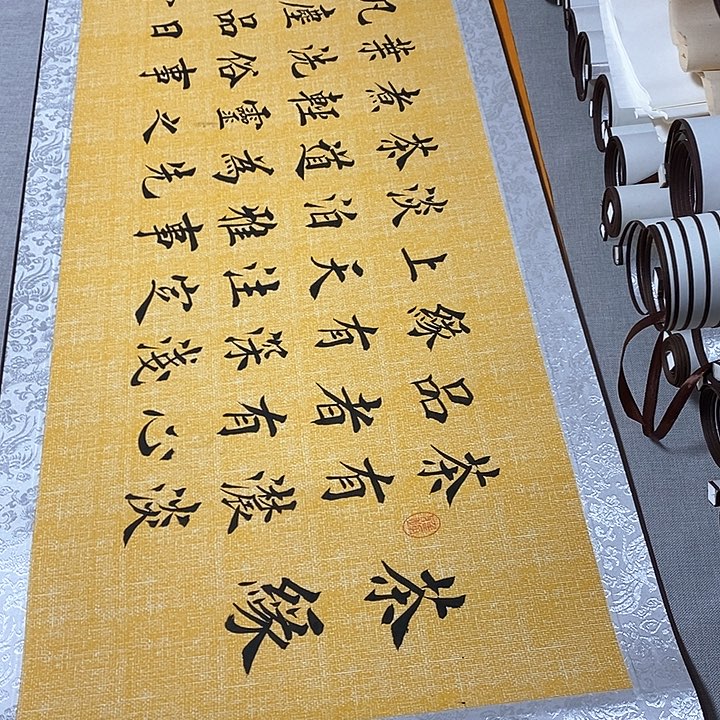 茶緣
茶有濃淡
品者有心
緣有深淺
上天注定
淡泊雅事
茶道為先
煮輕靈之
葉洗俗事
塵品日